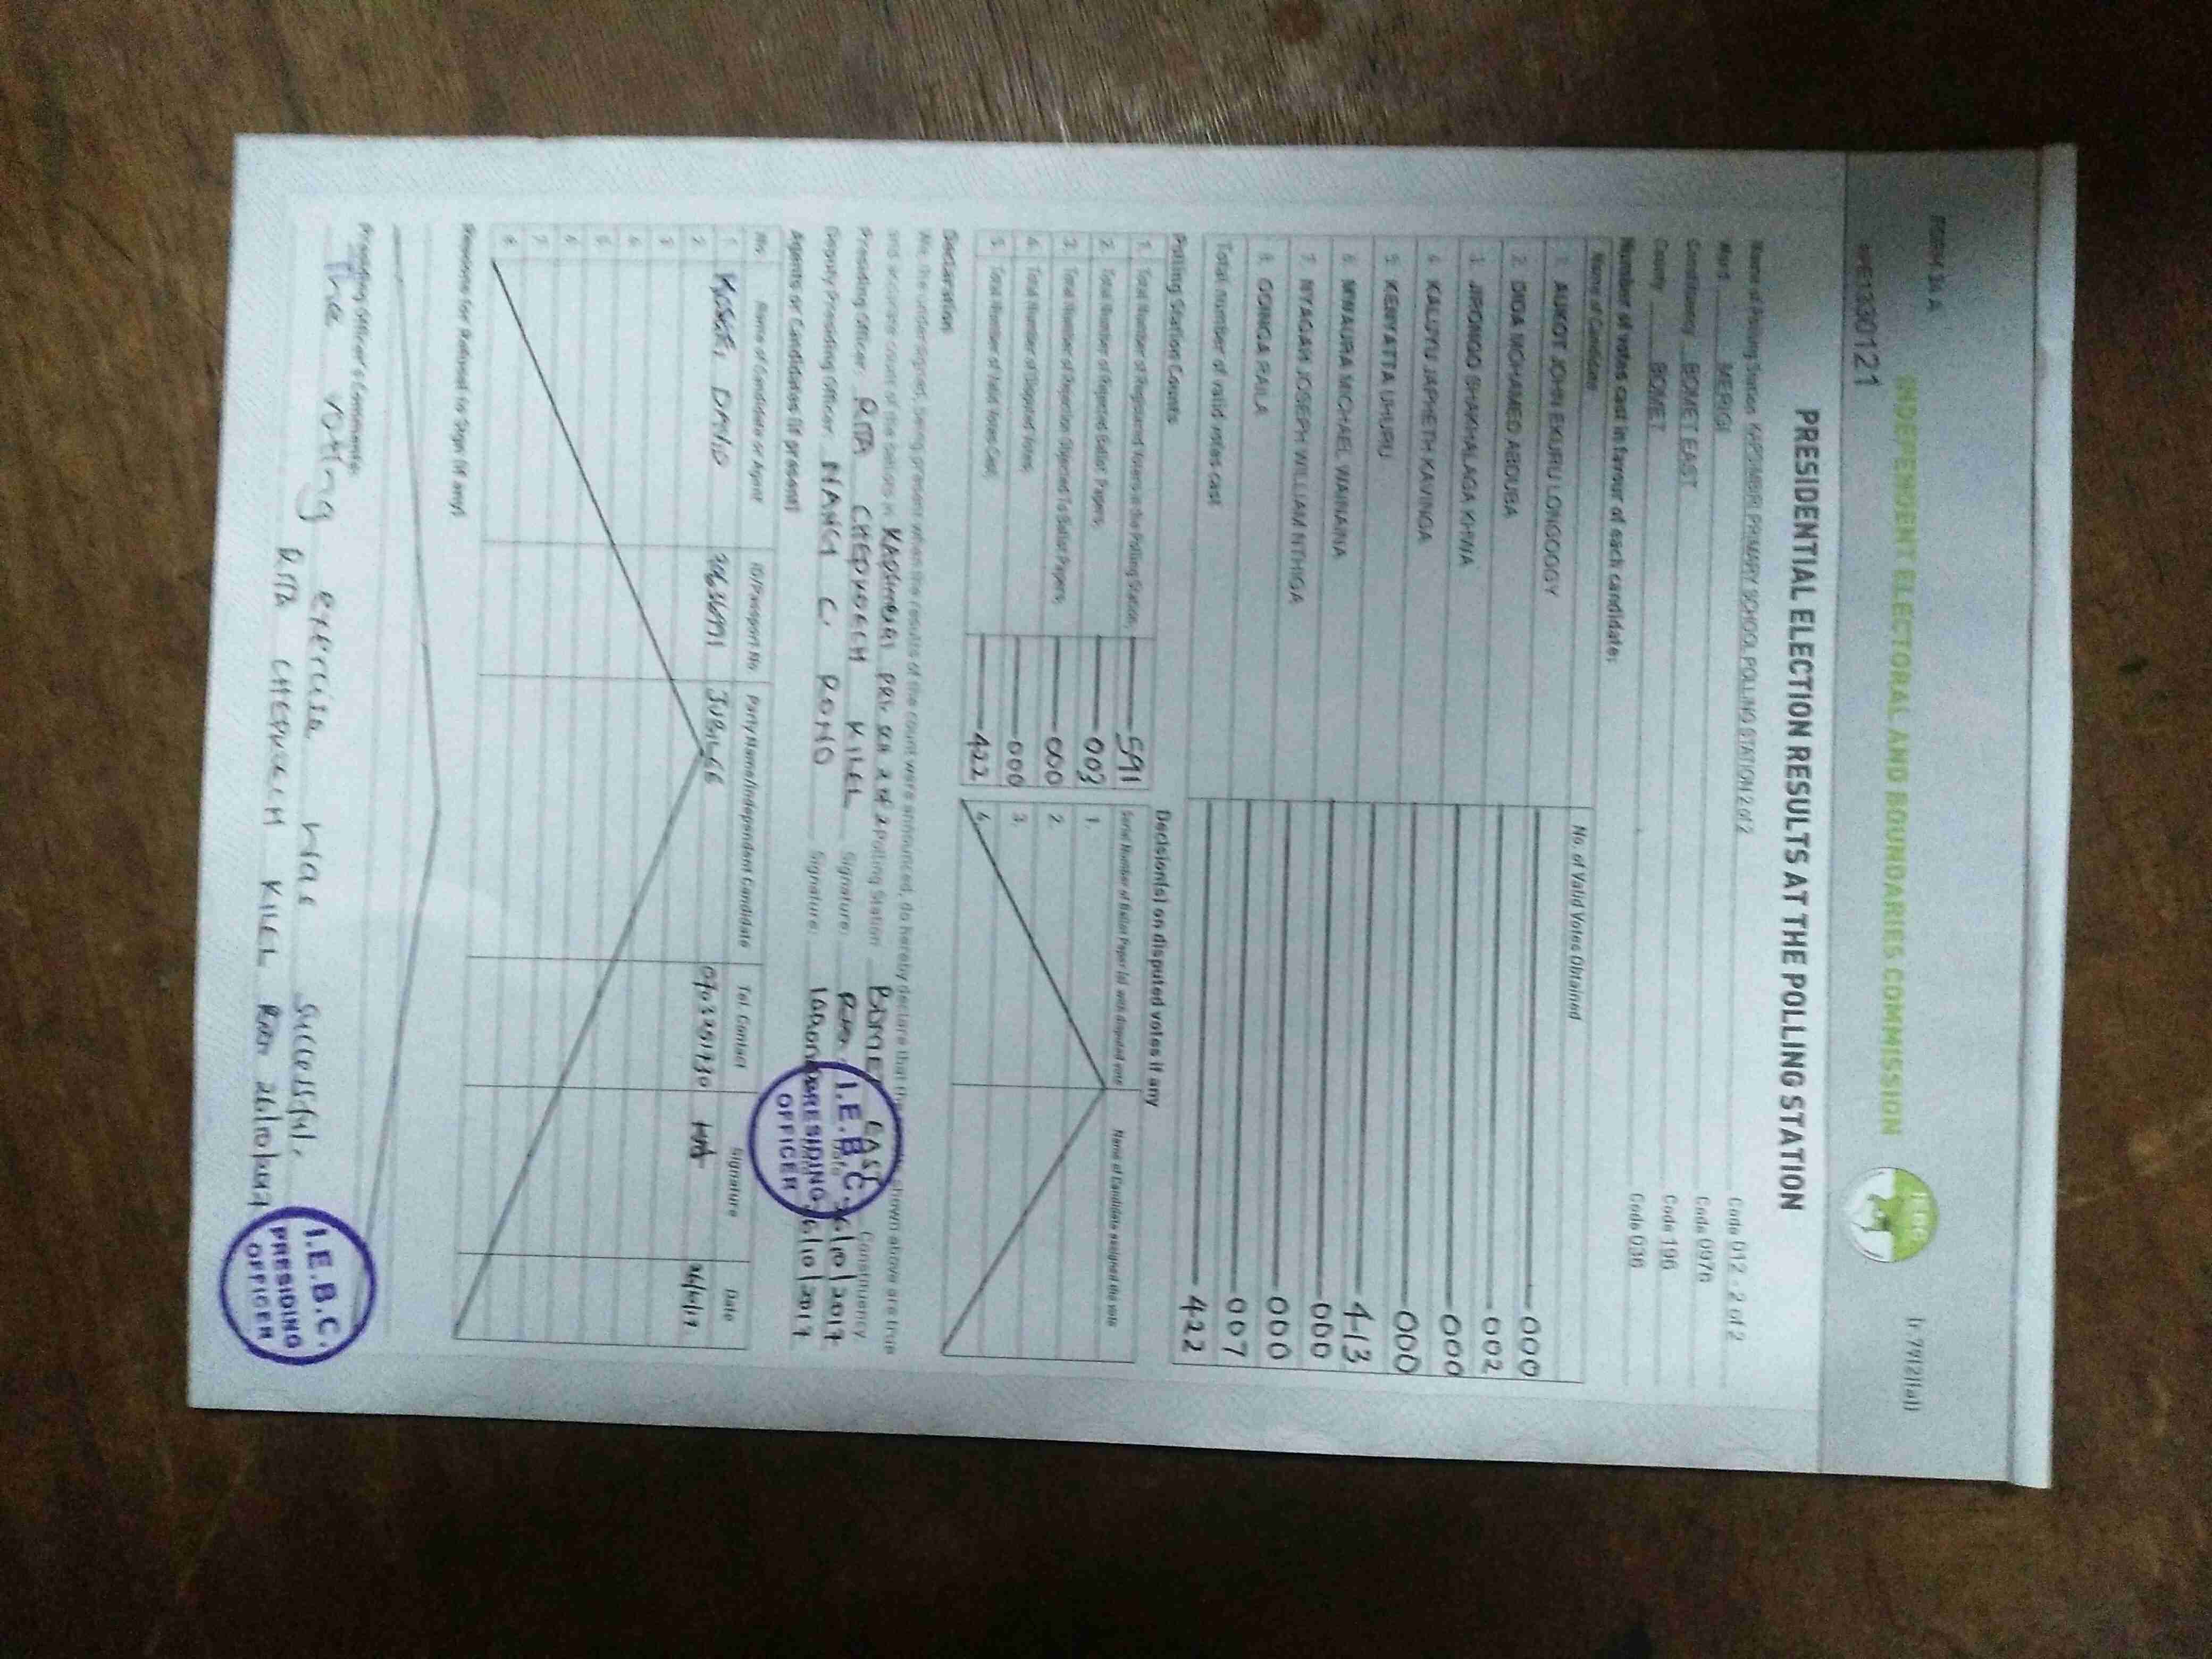 FORM 34 A
(r.79(2)(a))
INDEPENDENT ELECTORAL AND BOUNDARIES COMMISSION
I.E.B.C
PRESIDENTIAL ELECTION RESULTS AT THE POLLING STATION
Name of Polling Station PRIMARY SCHOOL POLLING STATION 2 of 2 Code 012 - 2 of 2
Ward MERIGI Code 0976
Constituency BOMET EAST Code 196
County BOMET Code 036
Number of votes cast in favour of each candidate:
Name of Candidate No. of Valid Votes Obtained
1. AUKOT JOHN EKURU LONGOGGY 000
2. DIDA MOHAMED ABDUBA 002
3. JIRONGO SHAKHALAGA KHWA 000
4. KALUYU JAPHETH KAVINGA 000
5. KENYATTA UHURU 413
6. MWAURA MICHAEL WAINAINA 000
7. NYAGAH JOSEPH WILLIAM NTHIGA 000
8. ODINGA RAILA 007
Total number of valid votes cast 422
Polling Station Counts
Decision(s) on disputed votes if any
1. Total Number of Registered Voters in the Polling Station 591
2. Total Number of Rejected Ballot Papers 003
3. Total Number of Rejection Objected To Ballot Papers 000
4. Total Number of Disputed Votes 000
5. Total Number of Valid Votes Cast 422
Serial Number of Ballot Paper (s) with disputed vote Name of Candidate assigned the vote
1.
2.
3.
4.
Declaration
We, the undersigned, being present when the results of the count were announced, do hereby declare that the shown above are true
and accurate count of the ballots in PRI SCH 2 of 2 Polling Station BOMET EAST Constituency
Presiding Officer: RITA CHEPKOECH KILEL Signature: Date 26/10/2017
Deputy Presiding Officer: NANCY C. RONO Signature: 26/10/2017
I.E.B.C.
PRESIDING
OFFICER
Agents or Candidates (if present)
No. Name of Candidate or Agent ID/Passport No Party Name/Independent Candidate Tel. Contact Signature Date
1. DAVID JUBILEE 26/10/17
2.
3
4
5
6
7
8
Reasons for Refusal to Sign (if any)
Presiding Officer's Comments:
The voting exercise was successful.
RITA CHEPKOECH KILEL 26/10/2017
I.E.B.C.
PRESIDING
OFFICER